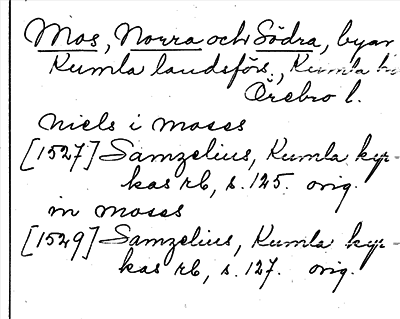 Mos, Norra och Södra, byar
Kumla landsförs., Kumla
Örebro l.
Niels i moses
[1527] Samzelius, Kumla kyr-
kas rb, s. 125. orig.
in moses
[1529] Samzelius, Kumla kyr-
kas rb, s. 127. orig.